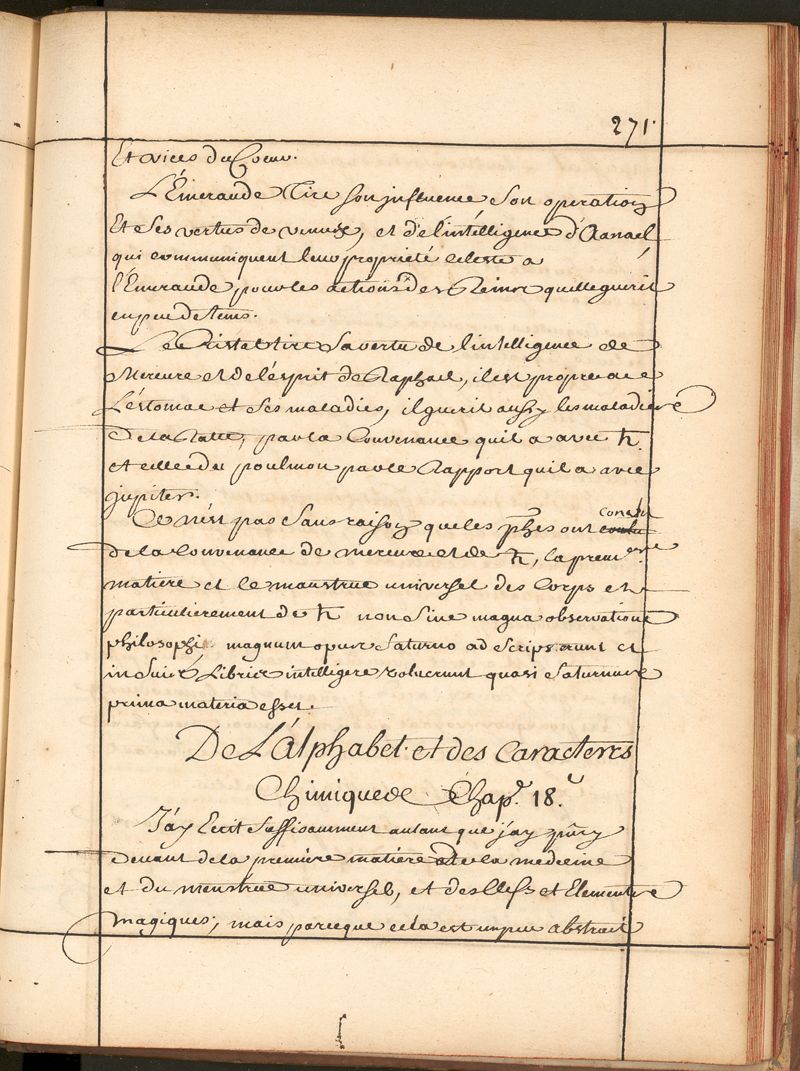 271.
Et vices du Coeur.
L'Emeraude Tire son influence Son operation
Et Ses vertus de venus, et de l'intelligence d'Aanael
qui communiquent leur propriété celeste a
l'Emeraude pour les actions des Reins quelle guerit
en peu de tems.
Le Cristal tire Sa vertu de l'intelligence de
Mercure et de l'ésprit de Raphael, il est propre a
L'éstomac et Ses maladies, il guerit aussy les maladies
de la Ratte, par la Convenance quil a avec ♄.
et celles du poulmon par le Rapport quil a avec
jupiter.
Ce n'ést pas Sans raison que les phes ont
de la Convenance de mercure et de ♄, la premiere
matiere et le menstrue universel des Corps et
particulierement de ♄ non Sine magna observatione
philosophi magnum opus Saturno adscripserunt et
in Suis Libris intelligere voluerunt quasi Saturnus
prima materia esset.
De L'álphabet et des Caracteres
Chimiques Chap.e 18.e
J'ay Ecrit Suffisamment autant que j'ay
devant de la premiere matiere de la medecine
et du menstrue universel, et des Clefs et Elements
magiques, mais parceque cela est un peu abstrait